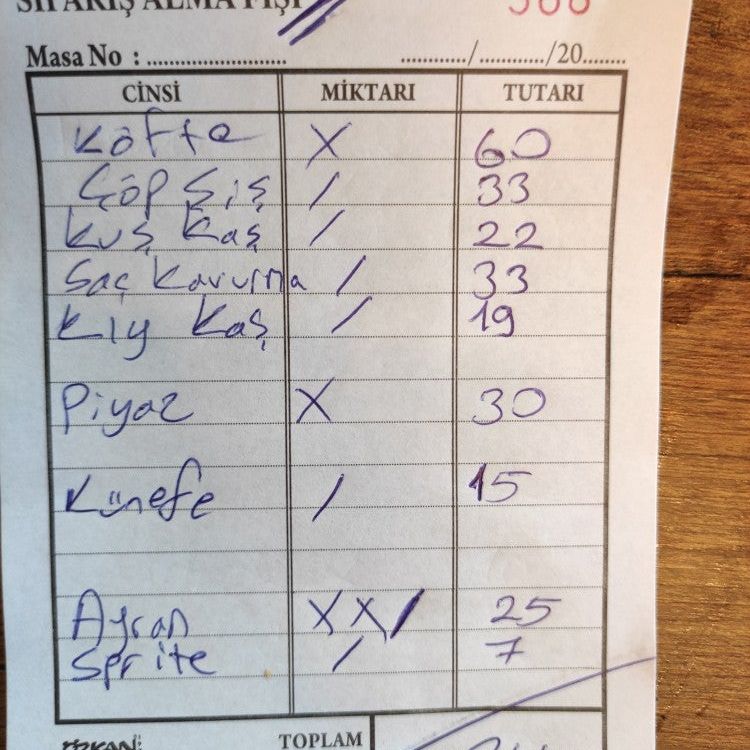 SİPARİŞ ALMA FİŞİ 568
Masa No : ........................ .........../.........../20.......
CİNSİ MİKTARI TUTARI
Köfte X 60
Çöp Şiş / 33
Kuş Kaş / 22
Saç Kavurma / 33
Kıy Kaş / 19
Piyaz X 30
Künefe / 15
Ayran X X / 25
Sprite / 7
TOPLAM